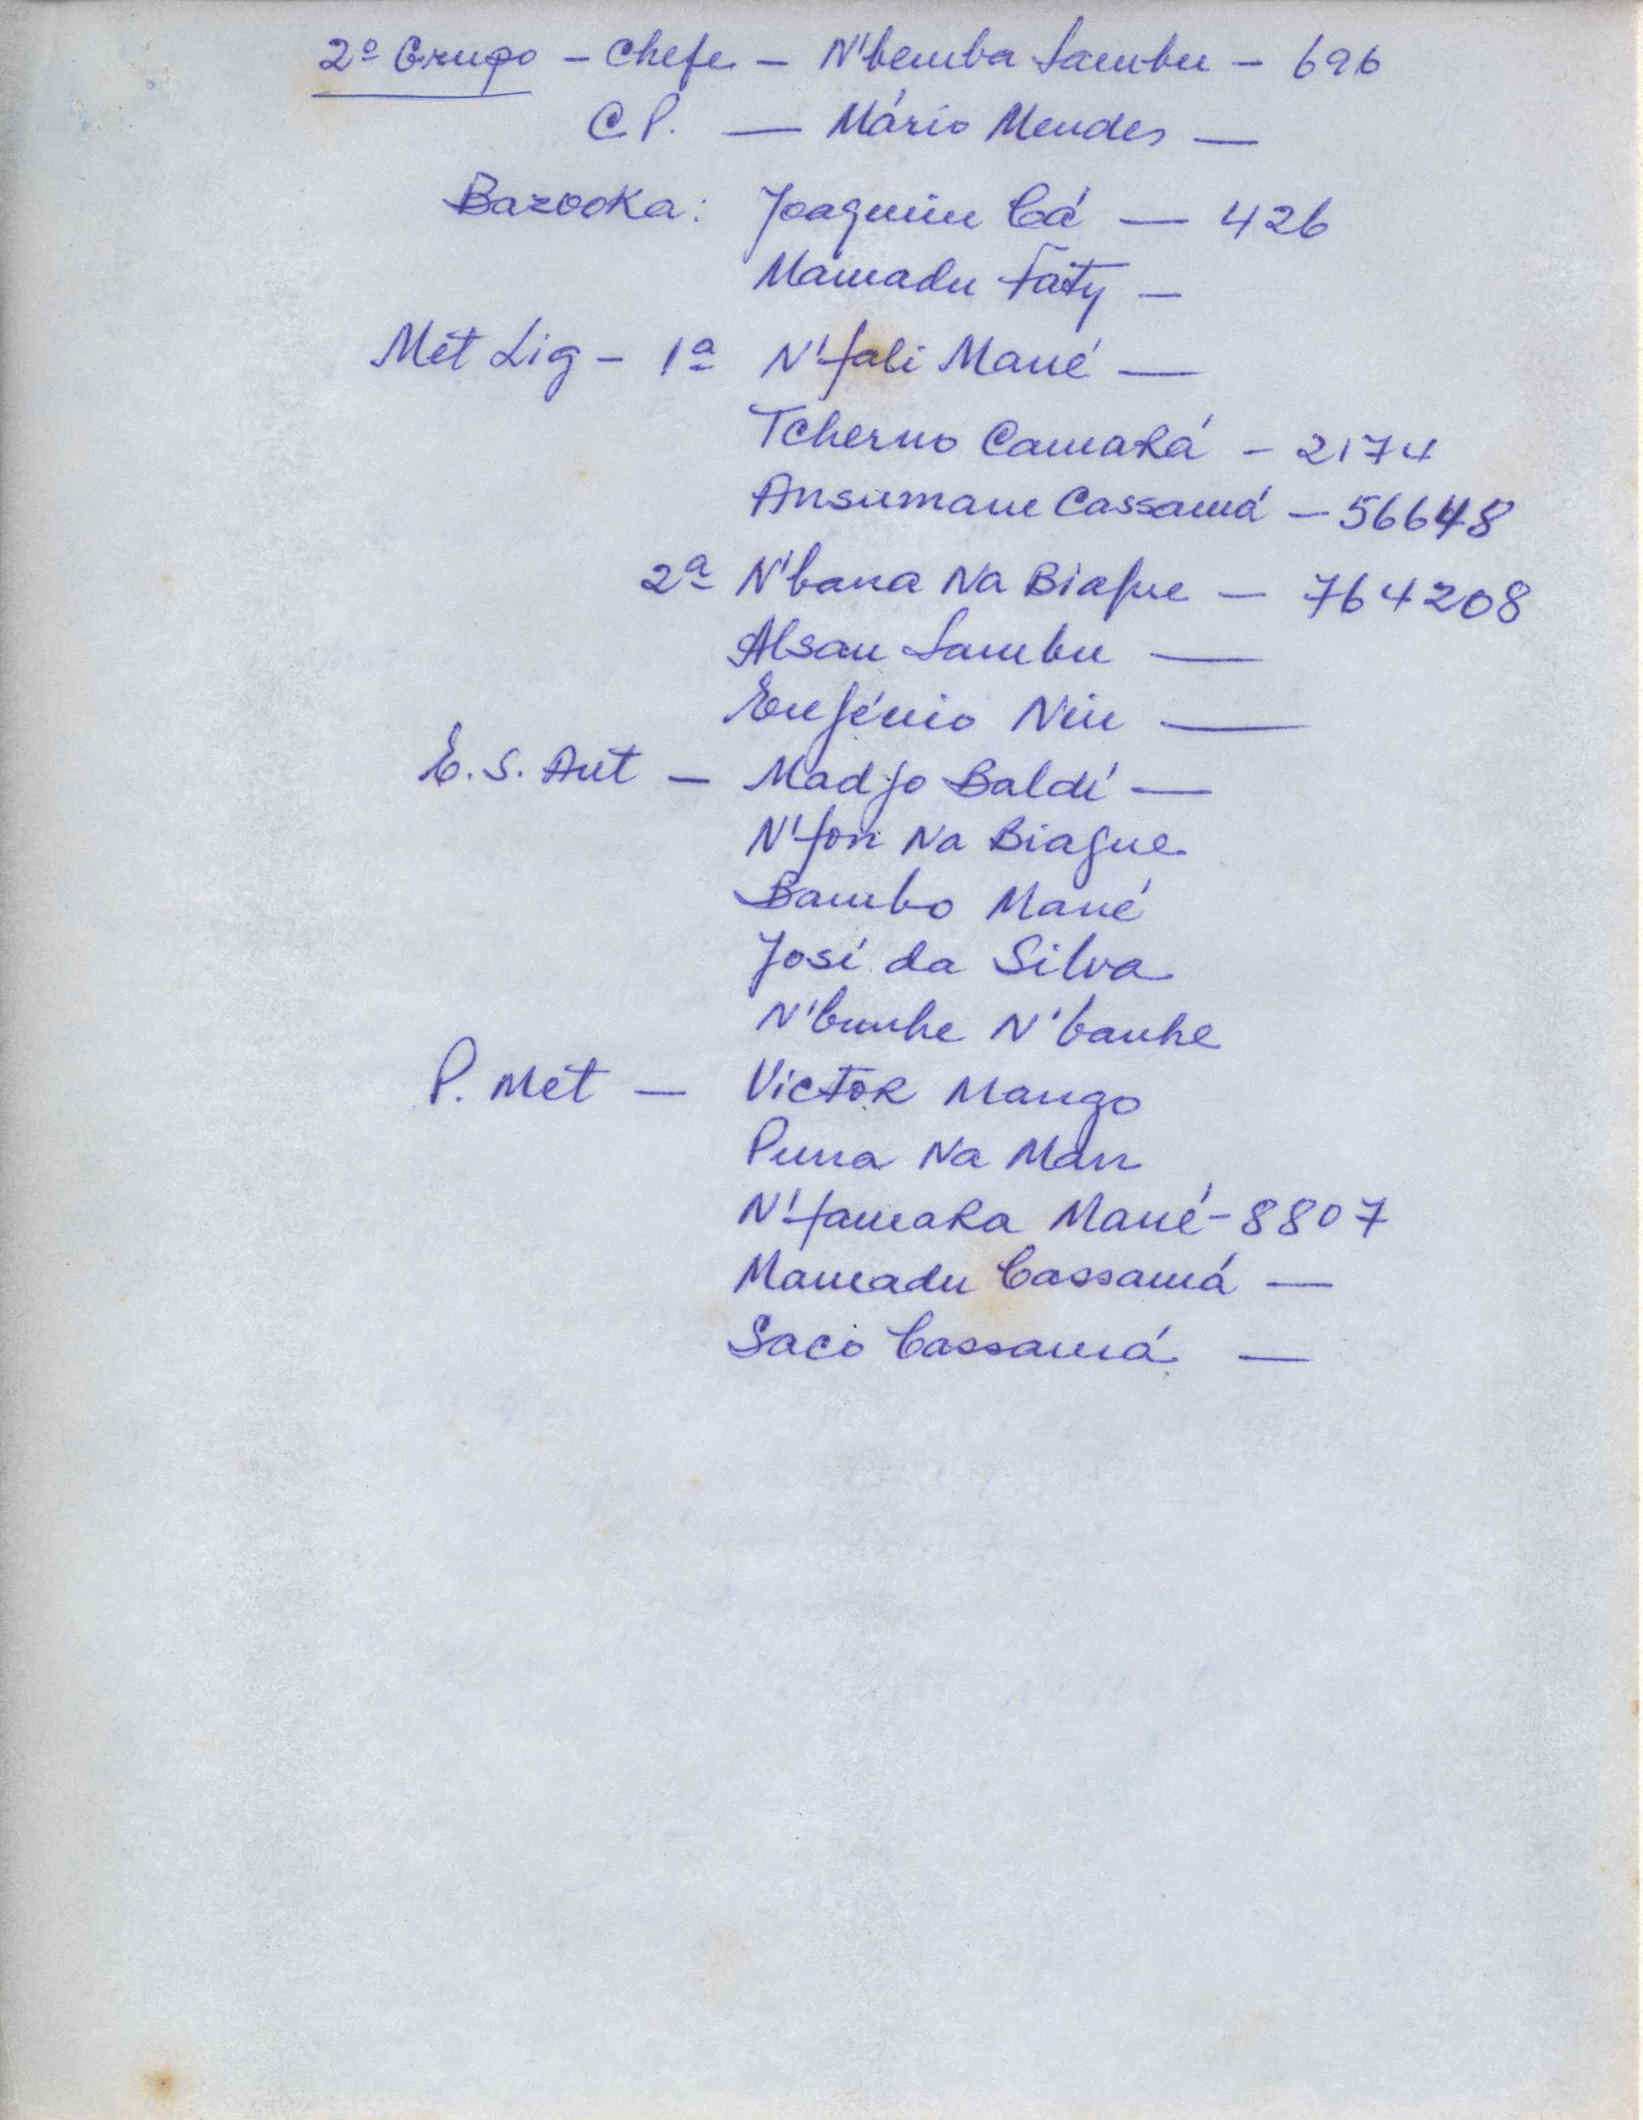 2º Grupo - Chefe - N'bemba Sambu - 696
C P. — Mário Mendes —
Bazooka: Joaquim Cá — 426
Mamadu Faty —
Met Lig - 1ª N'fali Mané —
Tcherno Camará - 2174
Ansumane Cassamá - 56648
2ª N'bana Na Biague - 764208
Alsau Sambu —
Eugénio Nin —
E. S. Aut - Madjo Baldé —
N'fon Na Biague
Bambo Mané
José da Silva
N'bunhe N'banhe
P. Met - Victor Mango
Puna Na Man
N'famara Mané - 8807
Mamadu Cassamá —
Saco Cassamá —